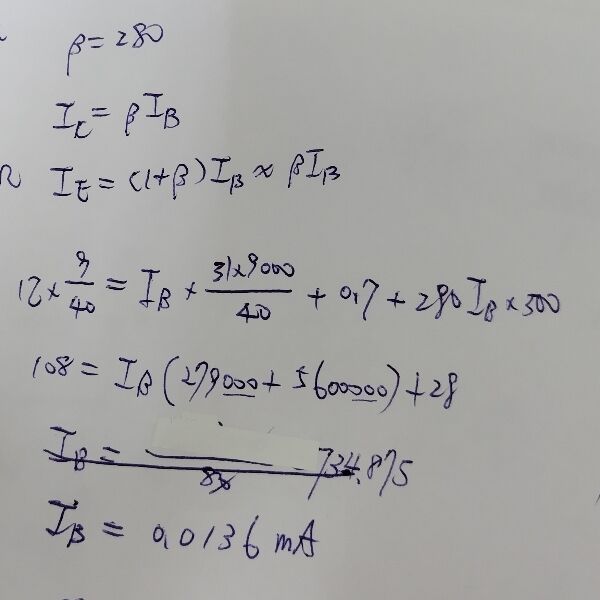 β = 280
I_C = βI_B
I_E = (1+β)I_B ≈ βI_B
12 × 9/40 = I_B × 31×9000/40 + 0.7 + 280 I_B × 500
108 = I_B (279000 + 5600000) + 28
I_B = 734.875
I_B = 0.0136 mA